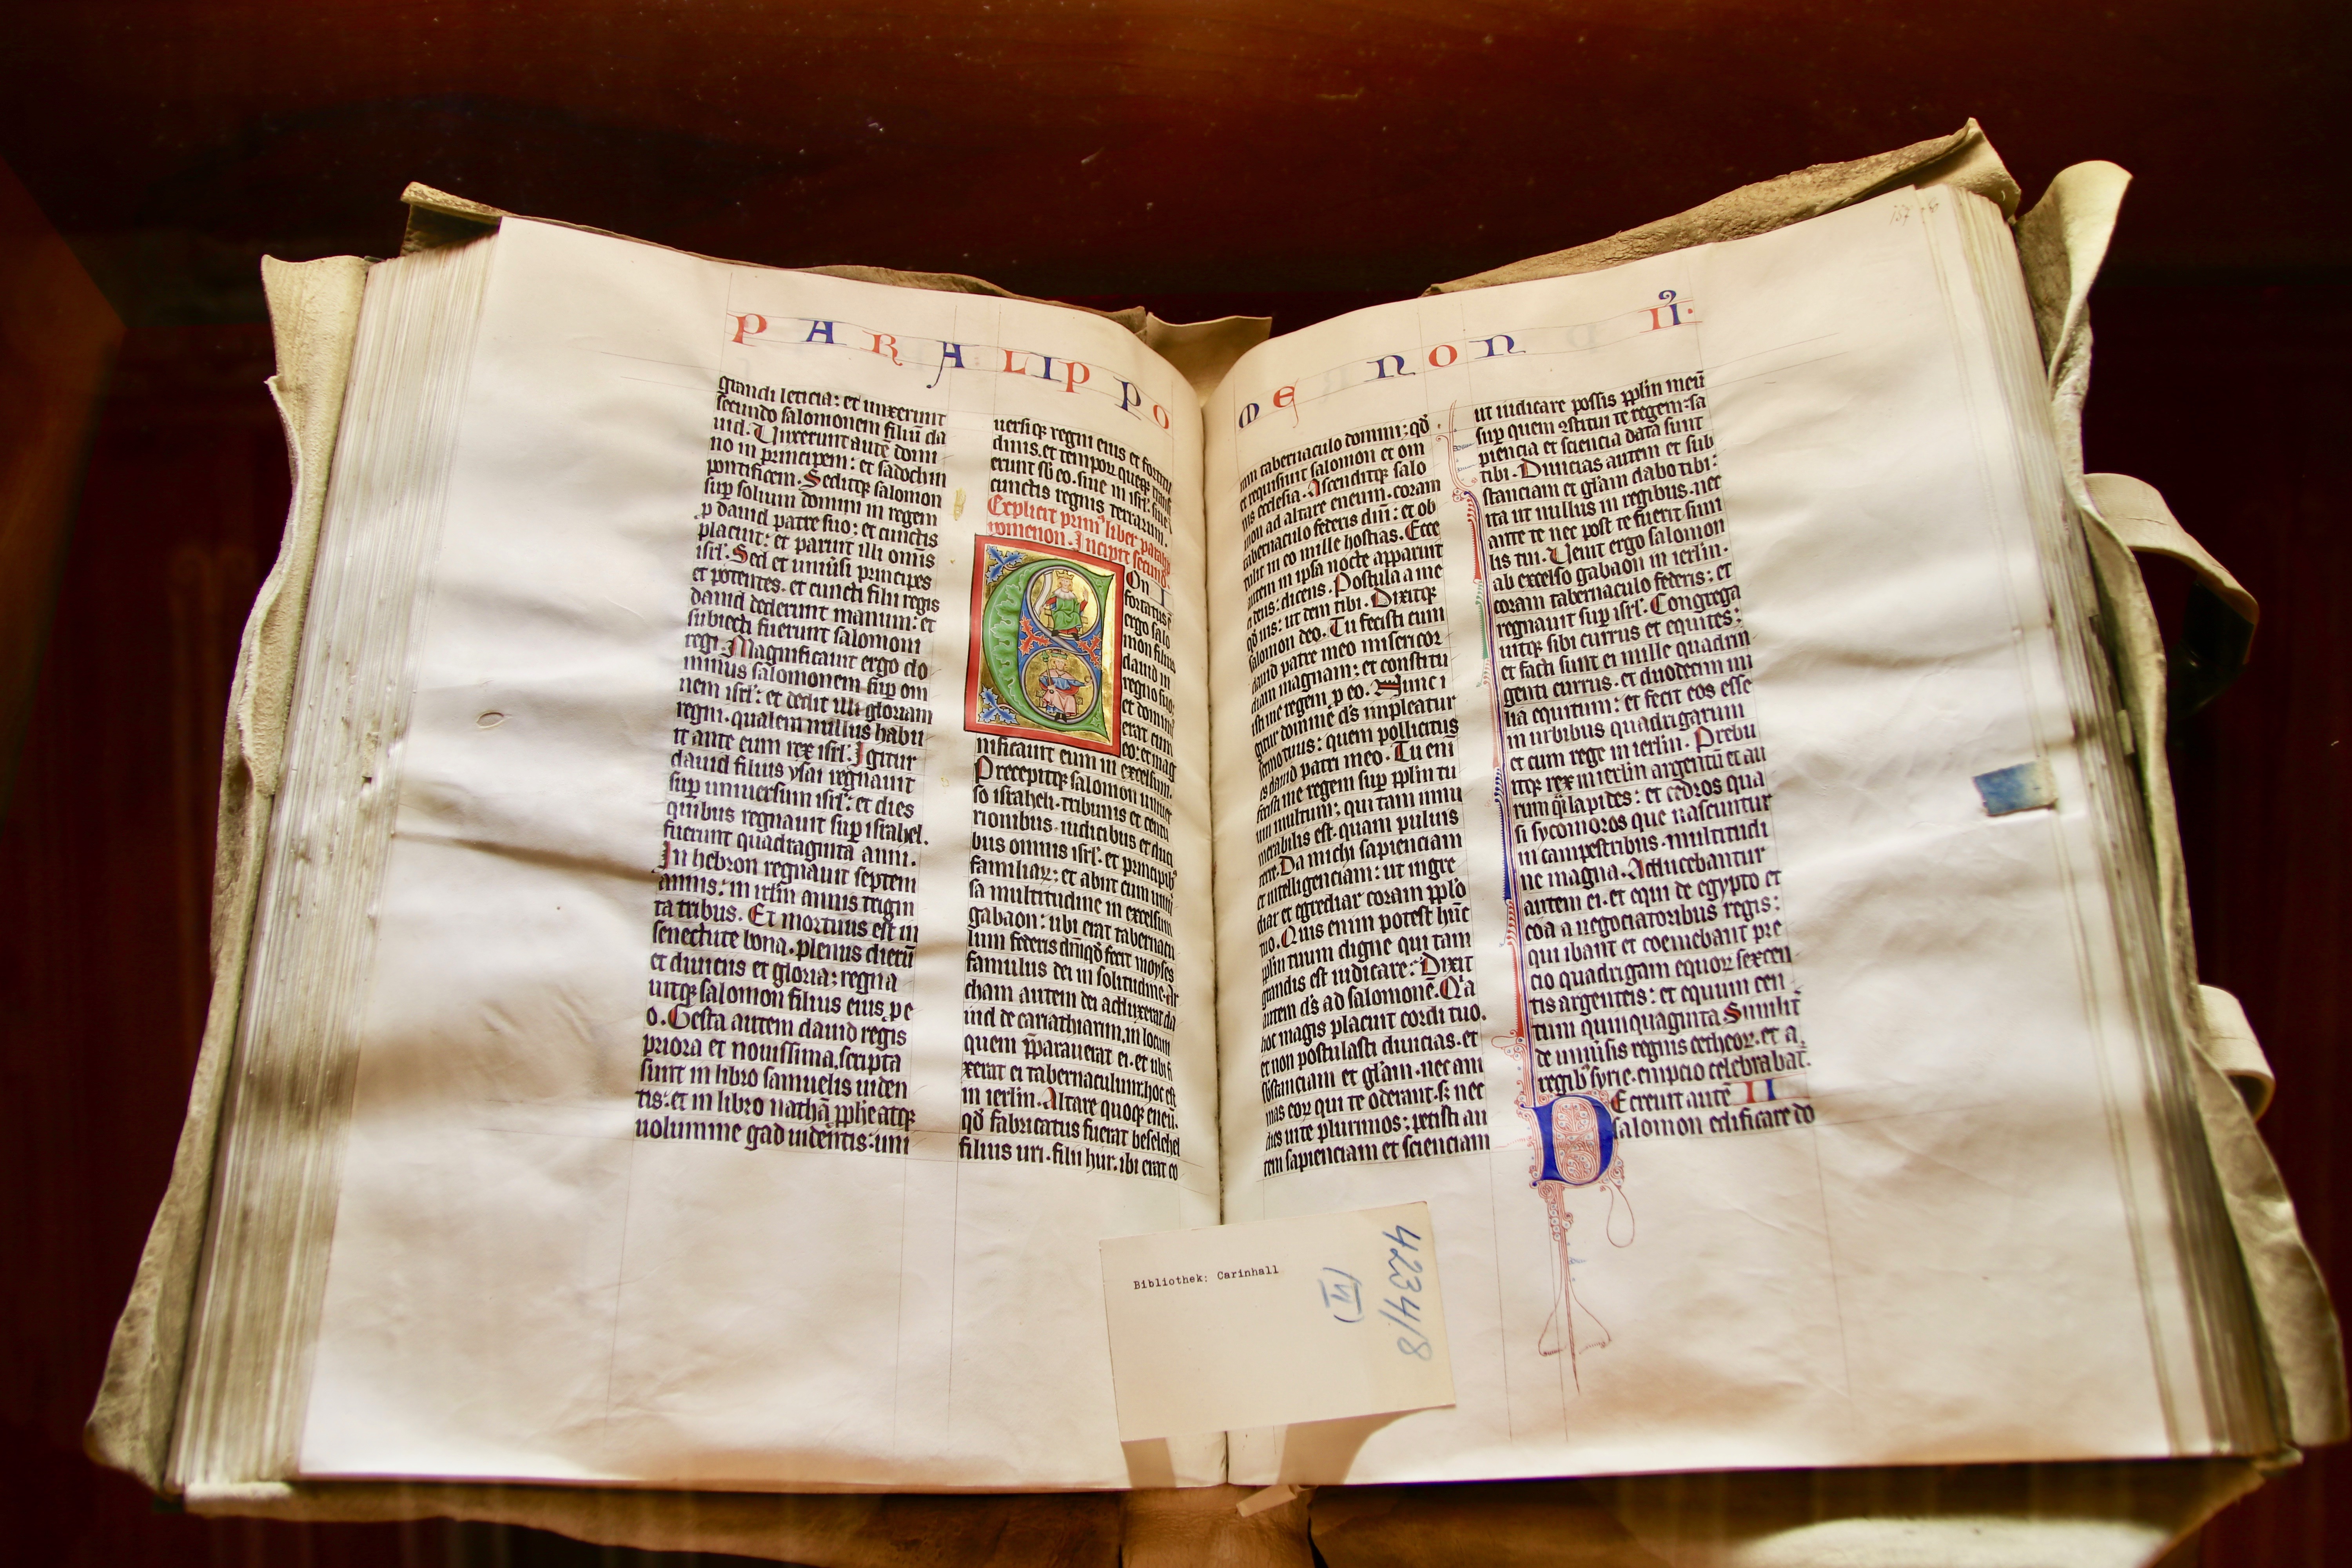 PARALIPPO
grandi leticia: et unxerunt
secundo salomonem filiū da
uid. Unxerunt autē domi
no in principem: et sadochin
pontificem. Seditqꝫ salomon
suꝑ solium domini in regem
ꝓ dauid patre suo: et cunctis
placuit: et paruit illi omīs
isrl'. Sed et uniūsi principes
et potentes. et cuncti filii regis
dauid dederunt manum: et
subiecti fuerunt salomoni
regi. Magnificauit ergo do
minus salomonem suꝑ om
nem isrl': et dedit illi gloriam
regni. qualem nullus habu
it ante eum rex isrl'. Igitur
dauid filius ysai regnauit
suꝑ uniuersum isrl': et dies
quibus regnauit suꝑ israhel.
fuerunt quadraginta anni.
In hebron regnauit septem
annis: in irl̄m annis trigin
ta tribus. Et mortuus est in
senectute bona. plenus dierū
et diuiciis et gloria: regna
uitqꝫ salomon filius eius ꝑ e
o. Gesta autem dauid regis
priora et nouissima. scripta
sunt in libro samuelis uiden
tis: et in libro nathā ꝓphe atqꝫ
uolumine gad uidentis: uni
uersi qꝫ regni eius et fortitu
dinis. et tempoꝝ que
erunt sb̄ eo. siue in isrl'. siue
cunctis regnis terrarum.
Explicit prim' liber parali
pomenon. Incipit secund'
Con I
fortatus
ergo salo
mon filius
dauid in
regno suo:
et domin'
erat cum
eo: et mag
nificauit eum in excelsum.
Precepitqꝫ salomon uniuer
so israheli. tribunis et centu
rionibus. iudicibus et duci
bus omnis isrl'. et principib'
familiaꝝ: et abiit cum uniu
sa multitudine in excelsum
gabaon: ubi erat tabernacu
lum federis dni qd̄ fecit moyses
famulus dei in solitudine. Ar
cham autem dei adduxerat da
uid de cariathiarim. in locum
quem p̄parauerat ei. et ubi fi
xerat ei tabernaculum: hoc est
in ierl̄m. Altare quoqꝫ eneū.
qd̄ fabricatus fuerat beselehel
filius uri. filii hur. ibi erat co
MENON II.
ram tabernaculo domini: qd̄
et requisiuit salomon et om
nis ecclesia. Ascenditqꝫ salo
mon ad altare eneum. coram
tabernaculo federis dni: et ob
tulit in eo mille hostias. Ecce
autem in ipsa nocte apparuit
ei deus: dicens. Postula a me
qd̄ uis: ut dem tibi. Dixitqꝫ
salomon deo. Tu fecisti cum
dauid patre meo misericor
diam magnam: et constitu
isti me regem ꝑ eo. Nunc i
gitur domine ds̄ impleatur
sermo tuus: quem pollicitus
es dauid patri meo. Tu eni
fecisti me regem suꝑ ppl̄m tu
um multum: qui tam innu
merabilis est. quam puluis
terre. Da michi sapienciam
et intelligenciam: ut ingre
diar et egrediar coram ppl̄o
tuo. Quis enim potest hūc
ppl̄m tuum digne qui tam
grandis est iudicare: Dixit
autem ds̄ ad salomonē. Q'a
hoc magis placuit cordi tuo.
et non postulasti diuicias. et
sb̄stanciam et gl̄am. nec ani
mas eoꝝ qui te oderant. sꝫ nec
dies uite plurimos: petisti au
tem sapienciam et scienciam
ut iudicare possis ppl̄m meū
suꝑ quem ꝯstitui te regem: sa
piencia et sciencia data sunt
tibi. Diuicias autem et sub
stanciam et gl̄am dabo tibi:
ita ut nullus in regibus. nec
ante te nec post te fuerit simi
lis tui. Uenit ergo salomon
ab excelso gabaon in ierl̄m.
coram tabernaculo federis: et
regnauit suꝑ isrl'. Congrega
uitqꝫ sibi currus et equites:
et facti sunt ei mille quadrin
genti currus. et duodecim mi
lia equitum: et fecit eos esse
in urbibus quadrigarum
et cum rege in ierl̄m. Prebu
itqꝫ rex in ierl̄m argentū et au
rum q̄si lapides: et cedros qua
si sycomoros que nascuntur
in campestribus. multitudi
ne magna. Adducebantur
autem ei. et equi de egypto et
coa a negociatoribus regis:
qui ibant et coemebant pre
cio quadrigam equoꝝ sexcen
tis argenteis: et equum cen
tum quinquaginta Similit'
de uniūsis regnis cetheoꝝ. et a
regib' syrie. empcio celebrabat'.
Decreuit autē II
salomon edificare do
Bibliothek: Carinhall
4234/8
(VI)